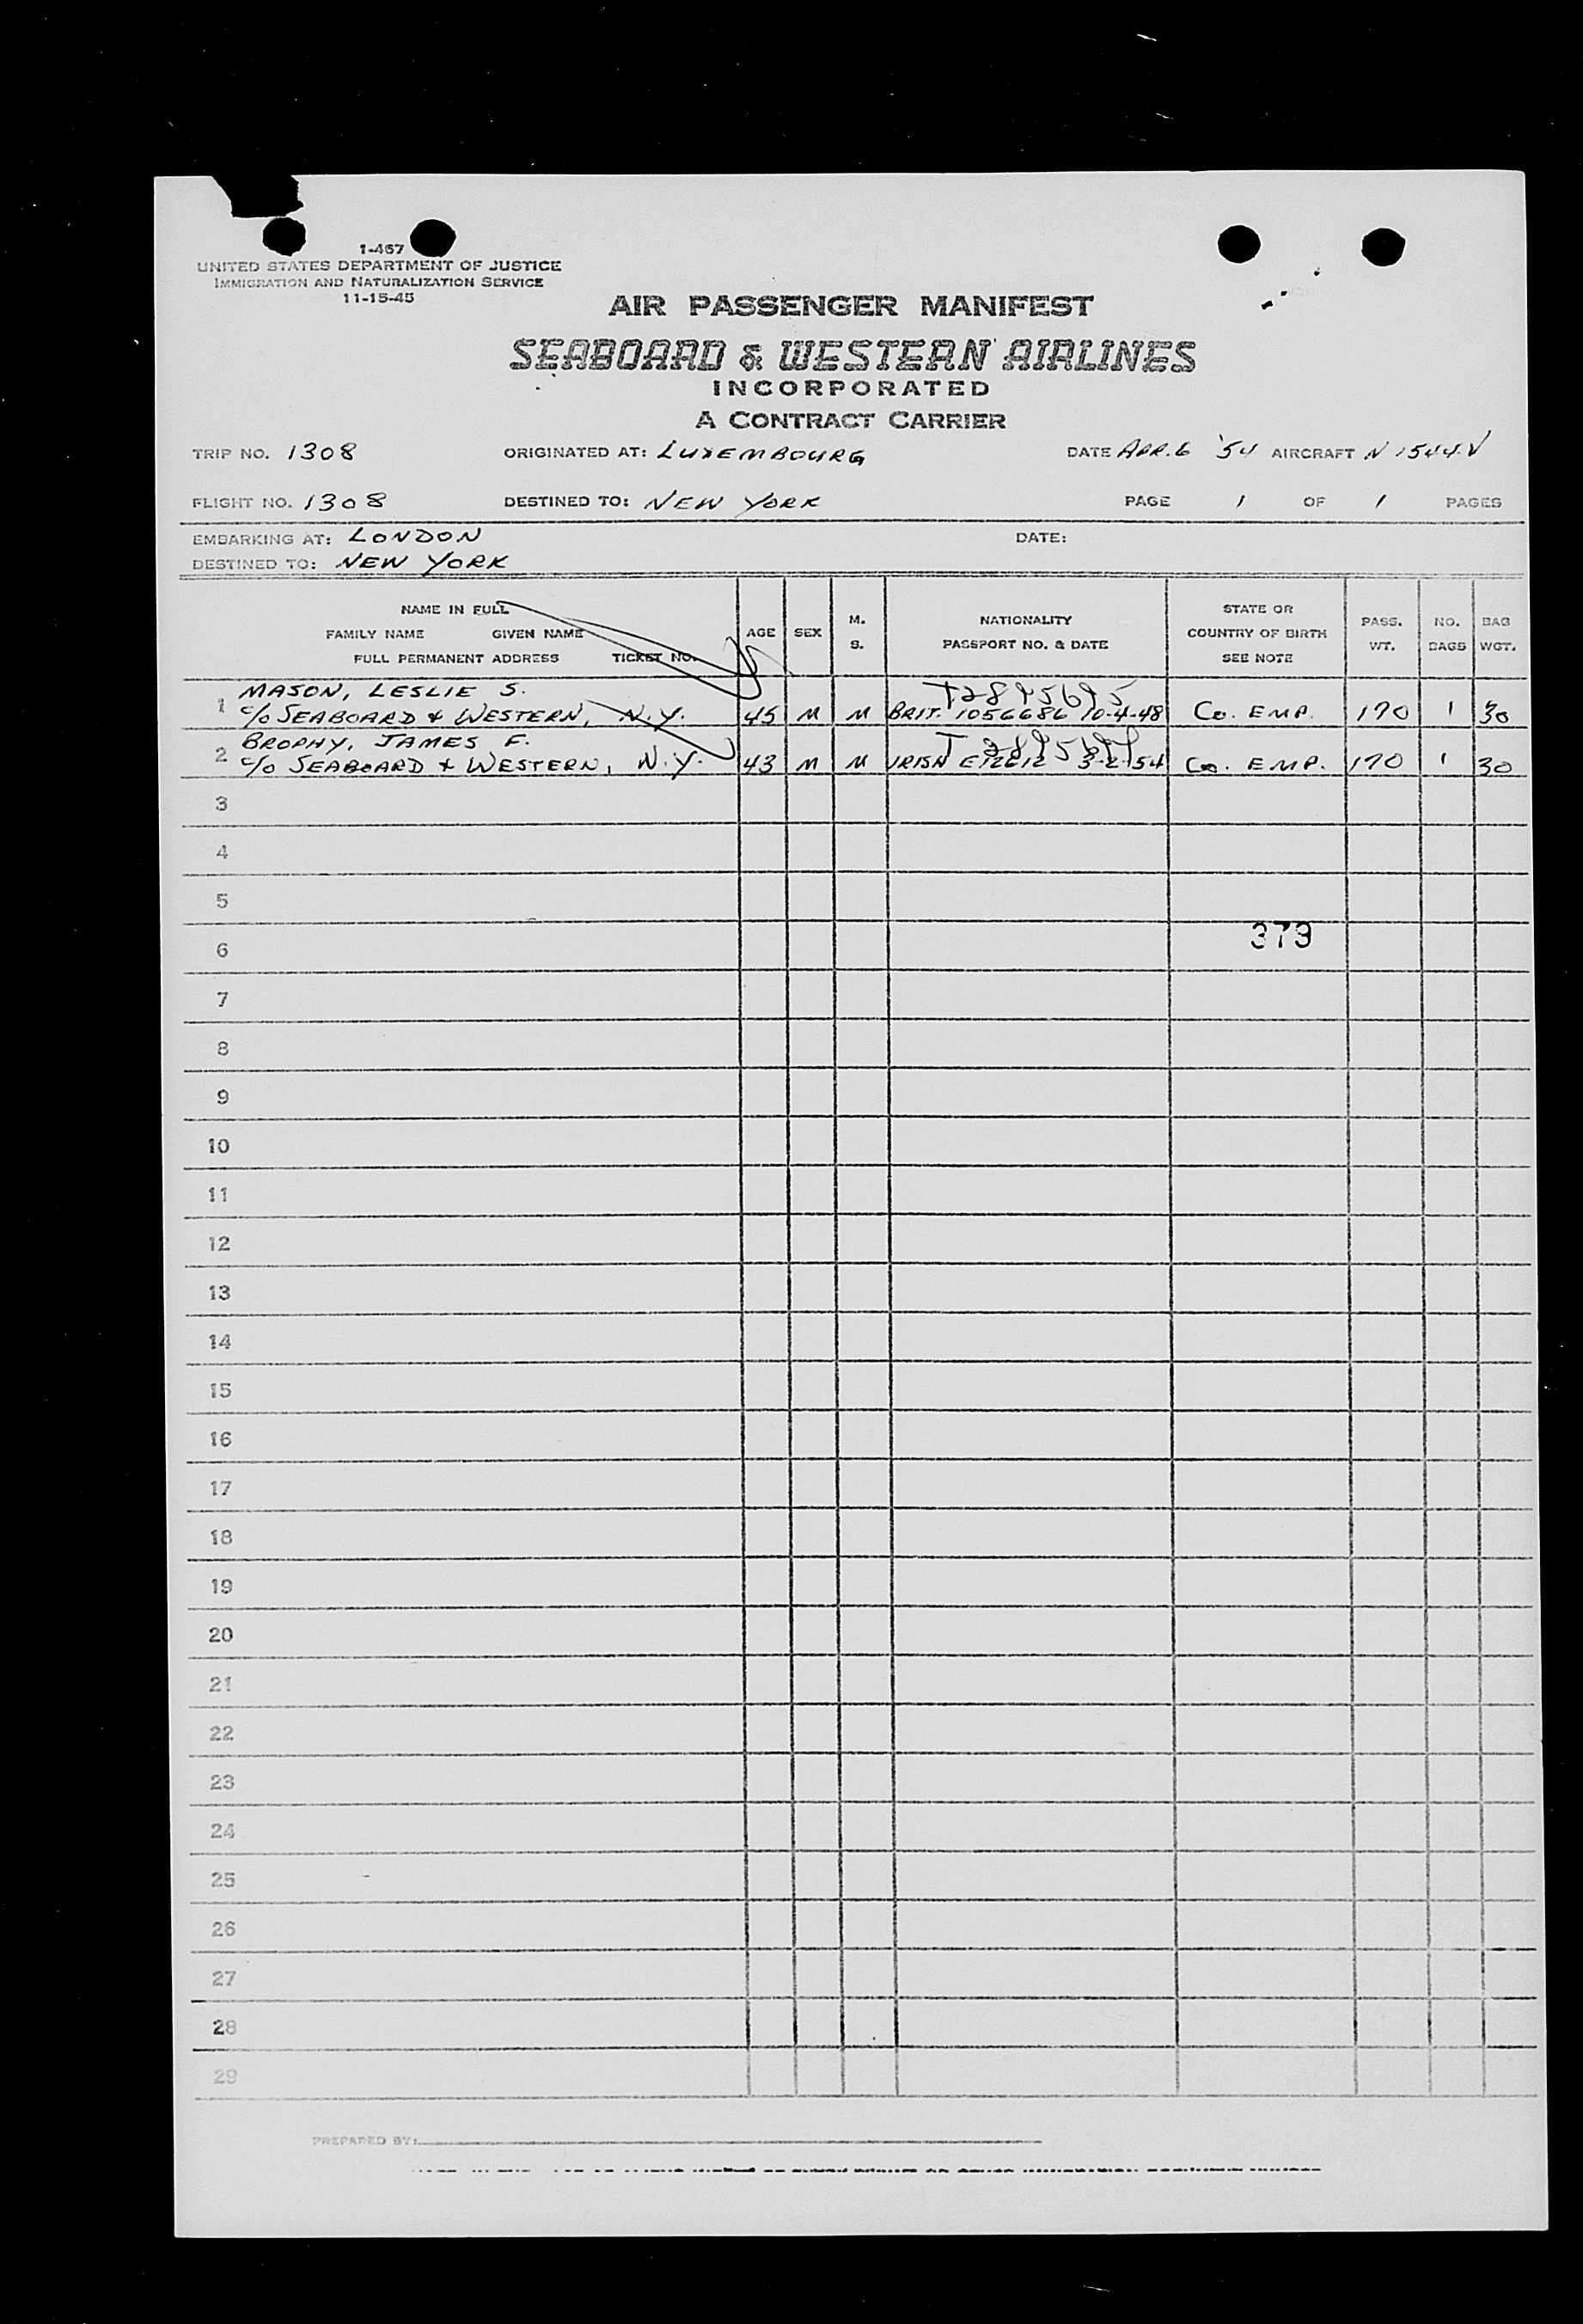 1-467
UNITED STATES DEPARTMENT OF JUSTICE
IMMIGRATION AND NATURALIZATION SERVICE
11-15-45
AIR PASSENGER MANIFEST
SEABOARD & WESTERN AIRLINES
INCORPORATED
A CONTRACT CARRIER
TRIP NO. 1308 ORIGINATED AT: LUXEMBOURG DATE APR. 6 '54 AIRCRAFT N 1544V
FLIGHT NO. 1308 DESTINED TO: NEW YORK PAGE 1 OF 1 PAGES
EMBARKING AT: LONDON DATE:
DESTINED TO: NEW YORK
NAME IN FULL
FAMILY NAME GIVEN NAME
FULL PERMANENT ADDRESS TICKET NO.
AGE
SEX
M.
S.
NATIONALITY
PASSPORT NO. & DATE
STATE OR
COUNTRY OF BIRTH
SEE NOTE
PASS.
WT.
NO.
BAGS
BAG
WGT.
MASON, LESLIE S. T2895695
1 c/o SEABOARD & WESTERN, N.Y. 45 M M BRIT. 1056686 10-4-48 Co. EMP. 170 1 30
BROPHY, JAMES F.
2 c/o SEABOARD & WESTERN, N.Y. 43 M M IRISH E12612 3-2-54 Co. EMP. 170 1 30
3
4
5
379
6
7
8
9
10
11
12
13
14
15
16
17
18
19
20
21
22
23
24
25
26
27
28
29
PREPARED BY: